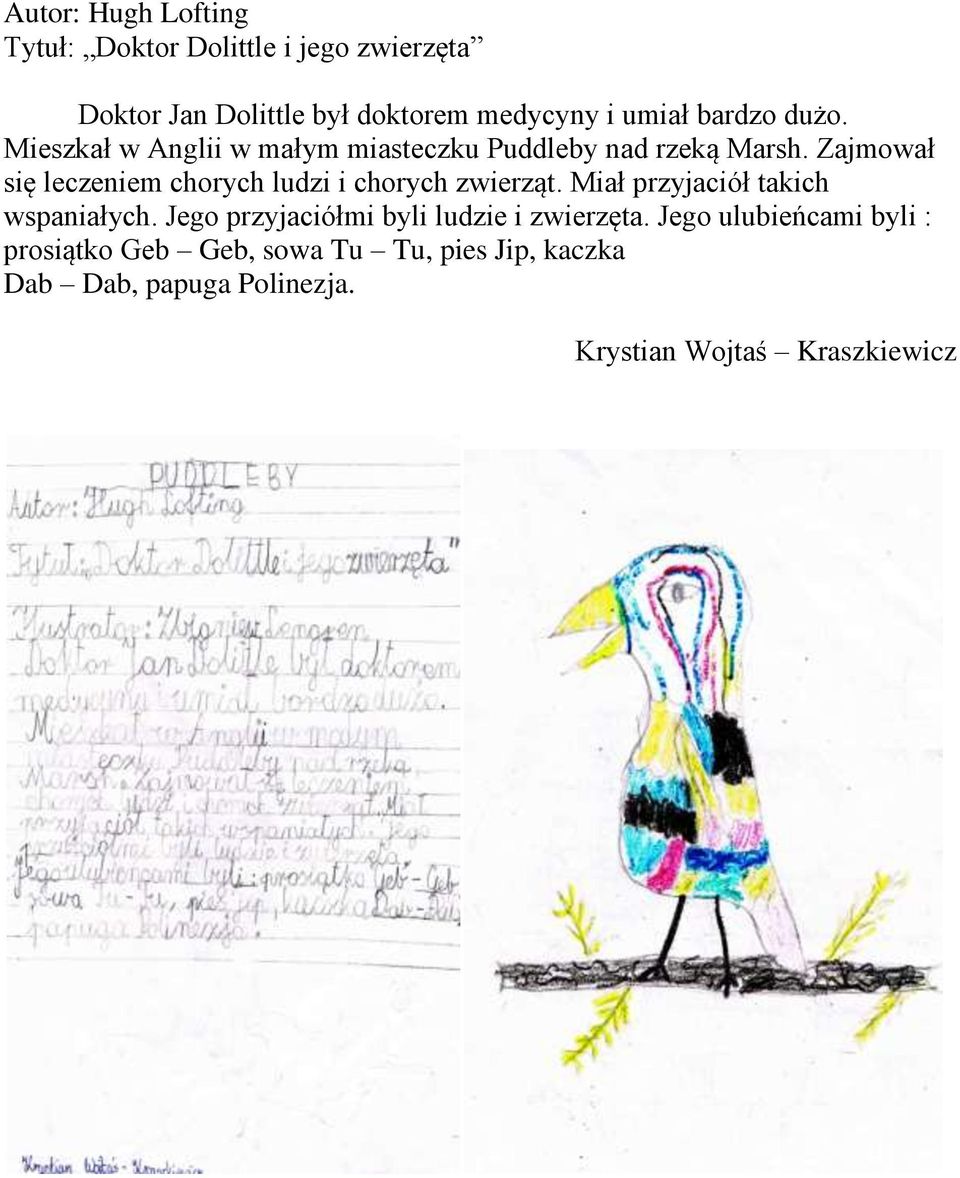 Autor: Hugh Lofting
Tytuł: „Doktor Dolittle i jego zwierzęta”
Doktor Jan Dolittle był doktorem medycyny i umiał bardzo dużo.
Mieszkał w Anglii w małym miasteczku Puddleby nad rzeką Marsh. Zajmował
się leczeniem chorych ludzi i chorych zwierząt. Miał przyjaciół takich
wspaniałych. Jego przyjaciółmi byli ludzie i zwierzęta. Jego ulubieńcami byli :
prosiątko Geb – Geb, sowa Tu – Tu, pies Jip, kaczka
Dab – Dab, papuga Polinezja.
Krystian Wojtaś – Kraszkiewicz
PUDDLEBY
Autor: Hugh Lofting
Tytuł: „Doktor Dolittle i jego zwierzęta"
Ilustrator: Zbigniew Lengren
Doktor Jan Dolittle był doktorem
medycyny i umiał bardzo dużo.
Mieszkał w Anglii w małym
miasteczku Puddleby nad rzeką
Marsh. Zajmował się leczeniem
chorych ludzi i chorych zwierząt. Miał
przyjaciół takich wspaniałych. Jego
przyjaciółmi byli ludzie i zwierzęta.
Jego ulubieńcami byli: prosiątko Geb-Geb,
sowa Tu-Tu, pies Jip, kaczka Dab-Dab,
papuga Polinezja.
Krystian Wojtaś-Kraszkiewicz